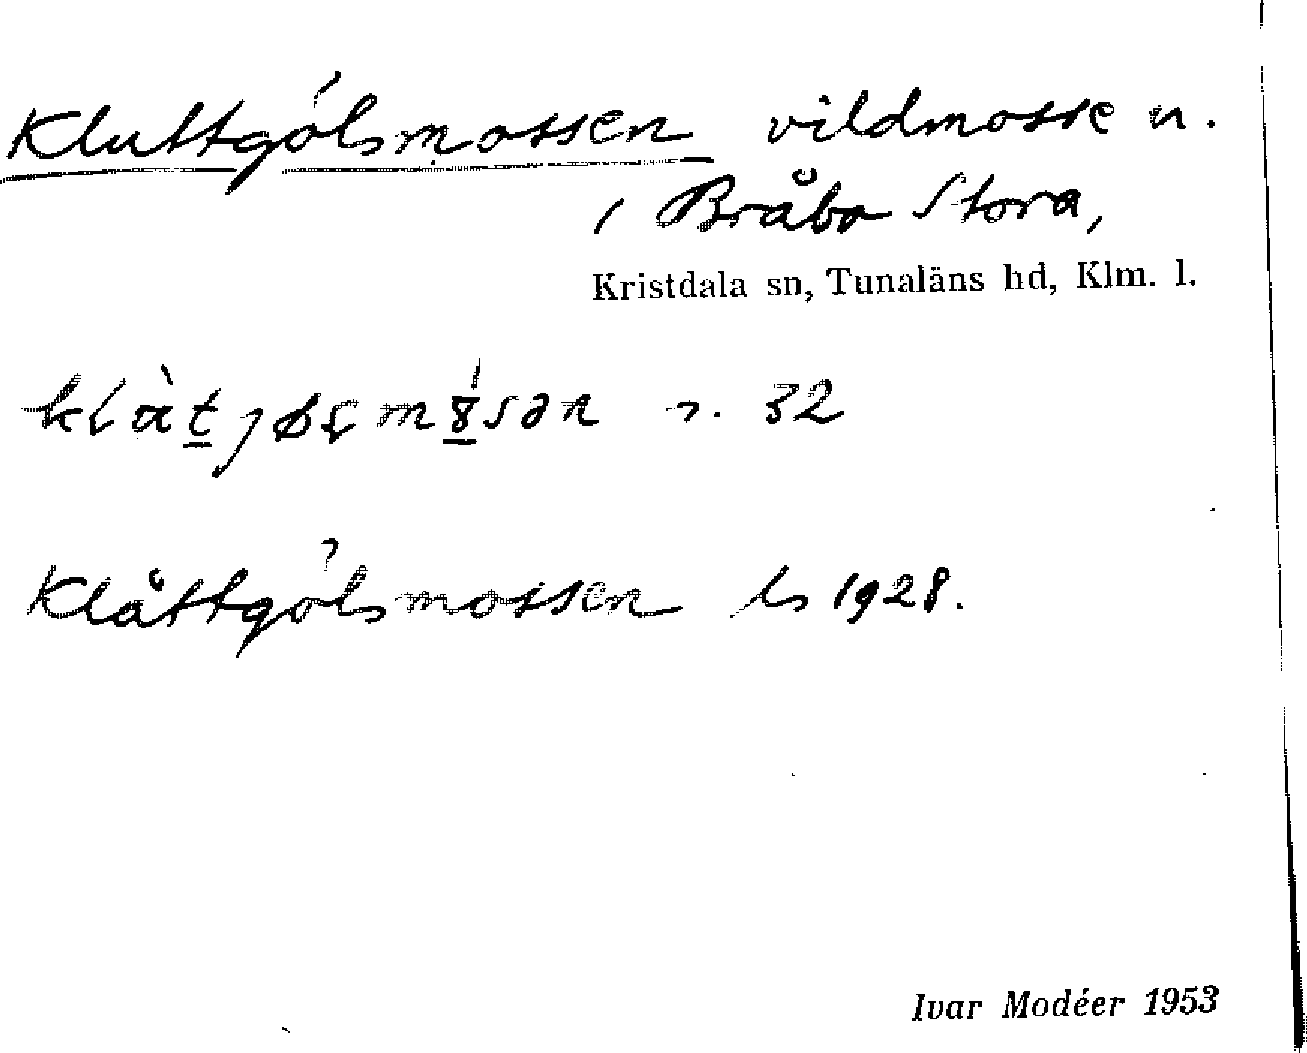 Kluttgólsmossen vildmosse n.
i Bråbo Stora,
Kristdala sn, Tunaläns hd, Klm. l.
32
Klåttgólsmossen ls 1928.
Ivar Modéer 1953